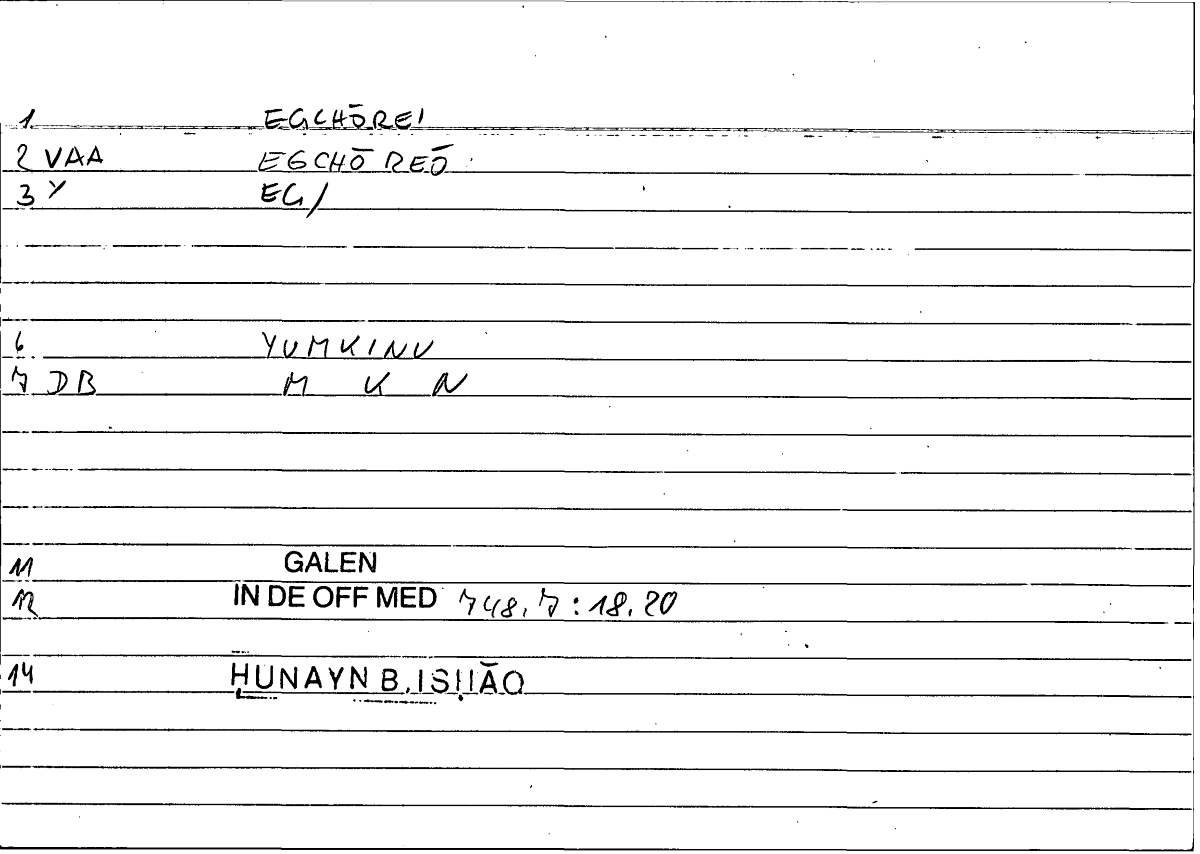 1 EGCHŌREI
2 VAA EGCHŌREŌ
3 Y EG/
6 YUMKINU
7 DB M K N
11 GALEN
12 IN DE OFF MED 748,7:18.20
14 ḤUNAYN B. ISḤĀQ